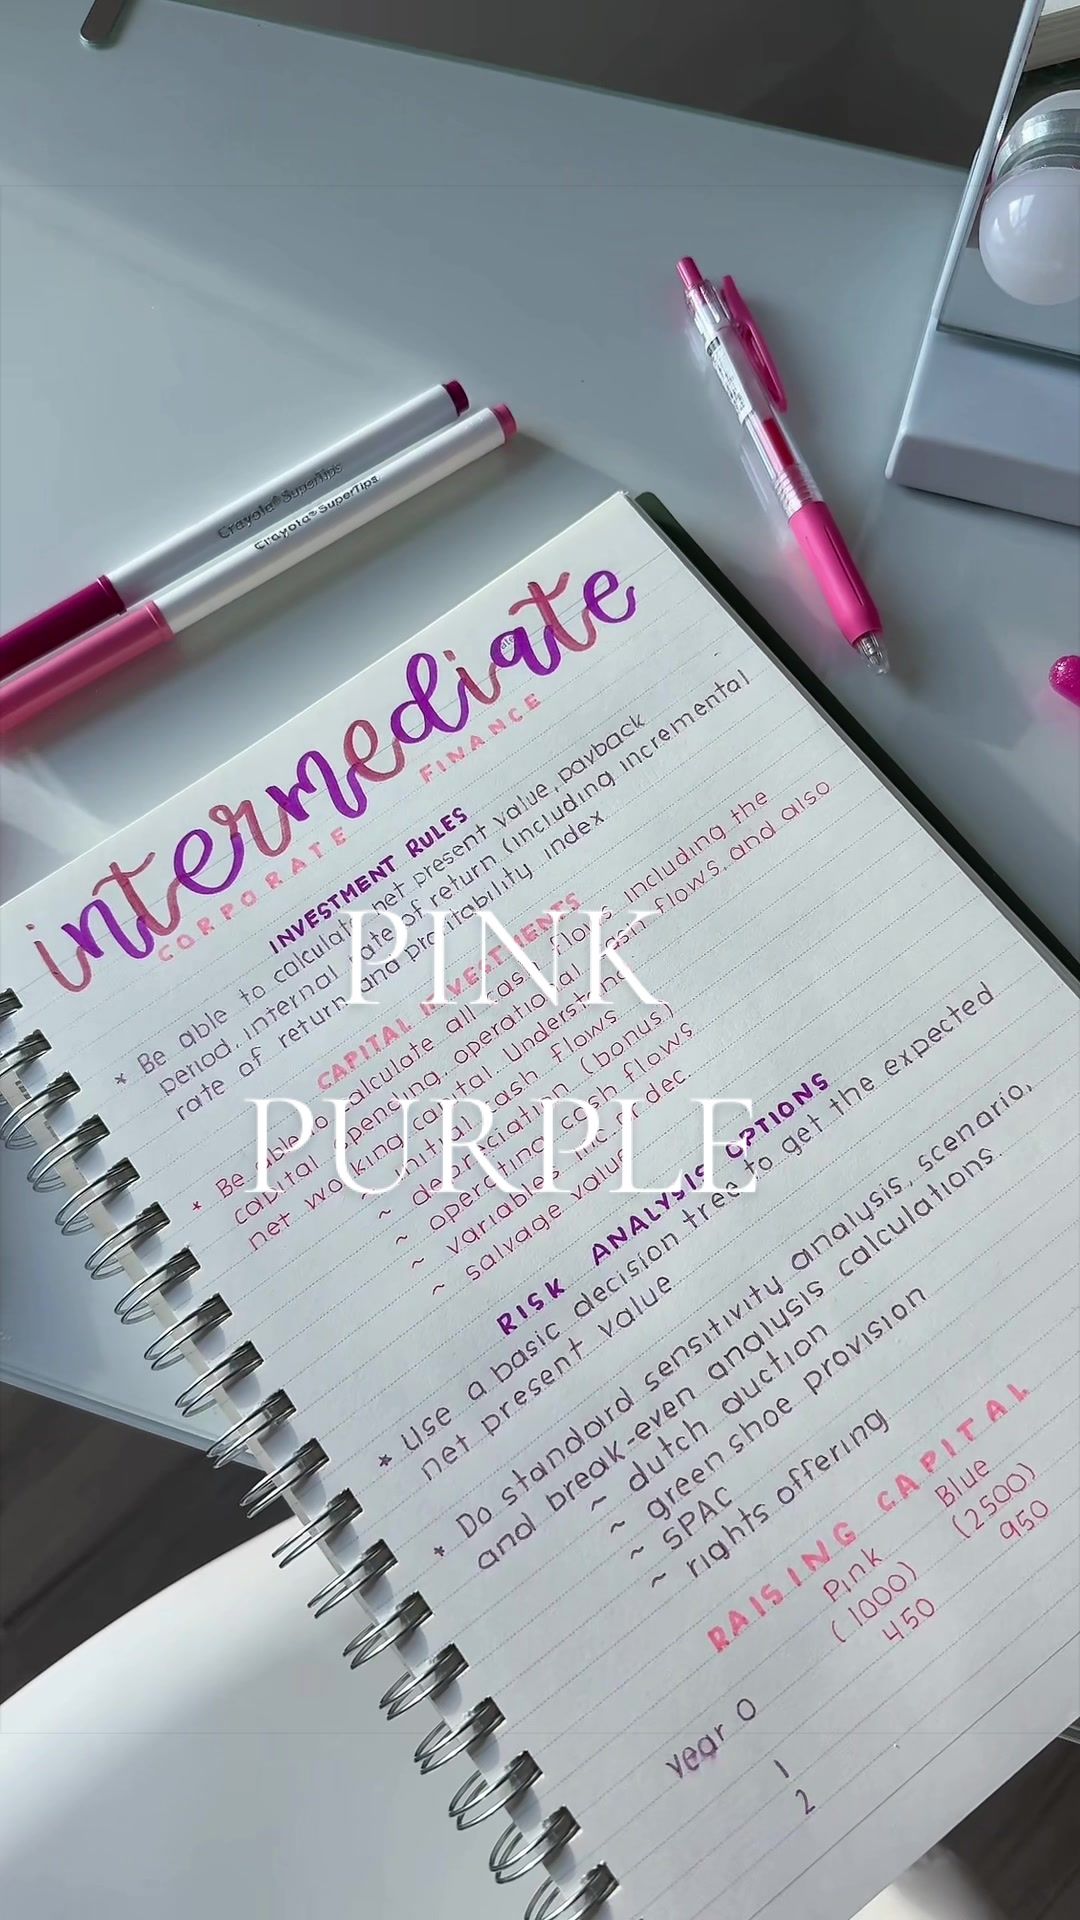 Crayola® SuperTips
Crayola® SuperTips
intermediate
CORPORATE FINANCE
INVESTMENT RULES
* Be able to calculate net present value, payback
period, internal rate of return (including incremental
rate of return and profitability index
PINK
CAPITAL INVESTMENTS
* Be able to calculate all cash flows including the
capital spending, operational cash flows and also
net working capital. Understand
~ initial cash flows
~ depreciation (bonus)
~ operating cash flows
~ variables inc. or dec.
~ salvage value
PURPLE
RISK ANALYSIS OPTIONS
* Use a basic decision tree to get the expected
net present value
* Do standard sensitivity analysis, scenario,
and break-even analysis calculations.
~ dutch auction
~ green shoe provision
~ SPAC
~ rights offering
RAISING CAPITAL
Pink Blue
year 0 (1000) (2500)
1 450 950
2